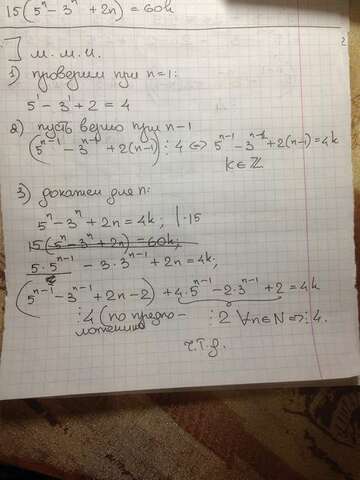 15(5ⁿ - 3ⁿ + 2n) = 60k
] м.м.и.
2
1) проверим при n=1:
5¹ - 3¹ + 2 = 4
2) пусть верно при n-1
(5ⁿ⁻¹ - 3ⁿ⁻¹ + 2(n-1)) ⋮ 4 ⇔ 5ⁿ⁻¹ - 3ⁿ⁻¹ + 2(n-1) = 4k
k∈ℤ
3) докажем для n:
5ⁿ - 3ⁿ + 2n = 4k; |·15
15(5ⁿ - 3ⁿ + 2n) = 60k;
5·5ⁿ⁻¹ - 3·3ⁿ⁻¹ + 2n = 4k;
(5ⁿ⁻¹ - 3ⁿ⁻¹ + 2n - 2) + 4·5ⁿ⁻¹ - 2·3ⁿ⁻¹ + 2 = 4k
⋮4 (по предпо- ⋮2 ∀n∈N ⇒ ⋮4.
ложению)
ч.т.д.